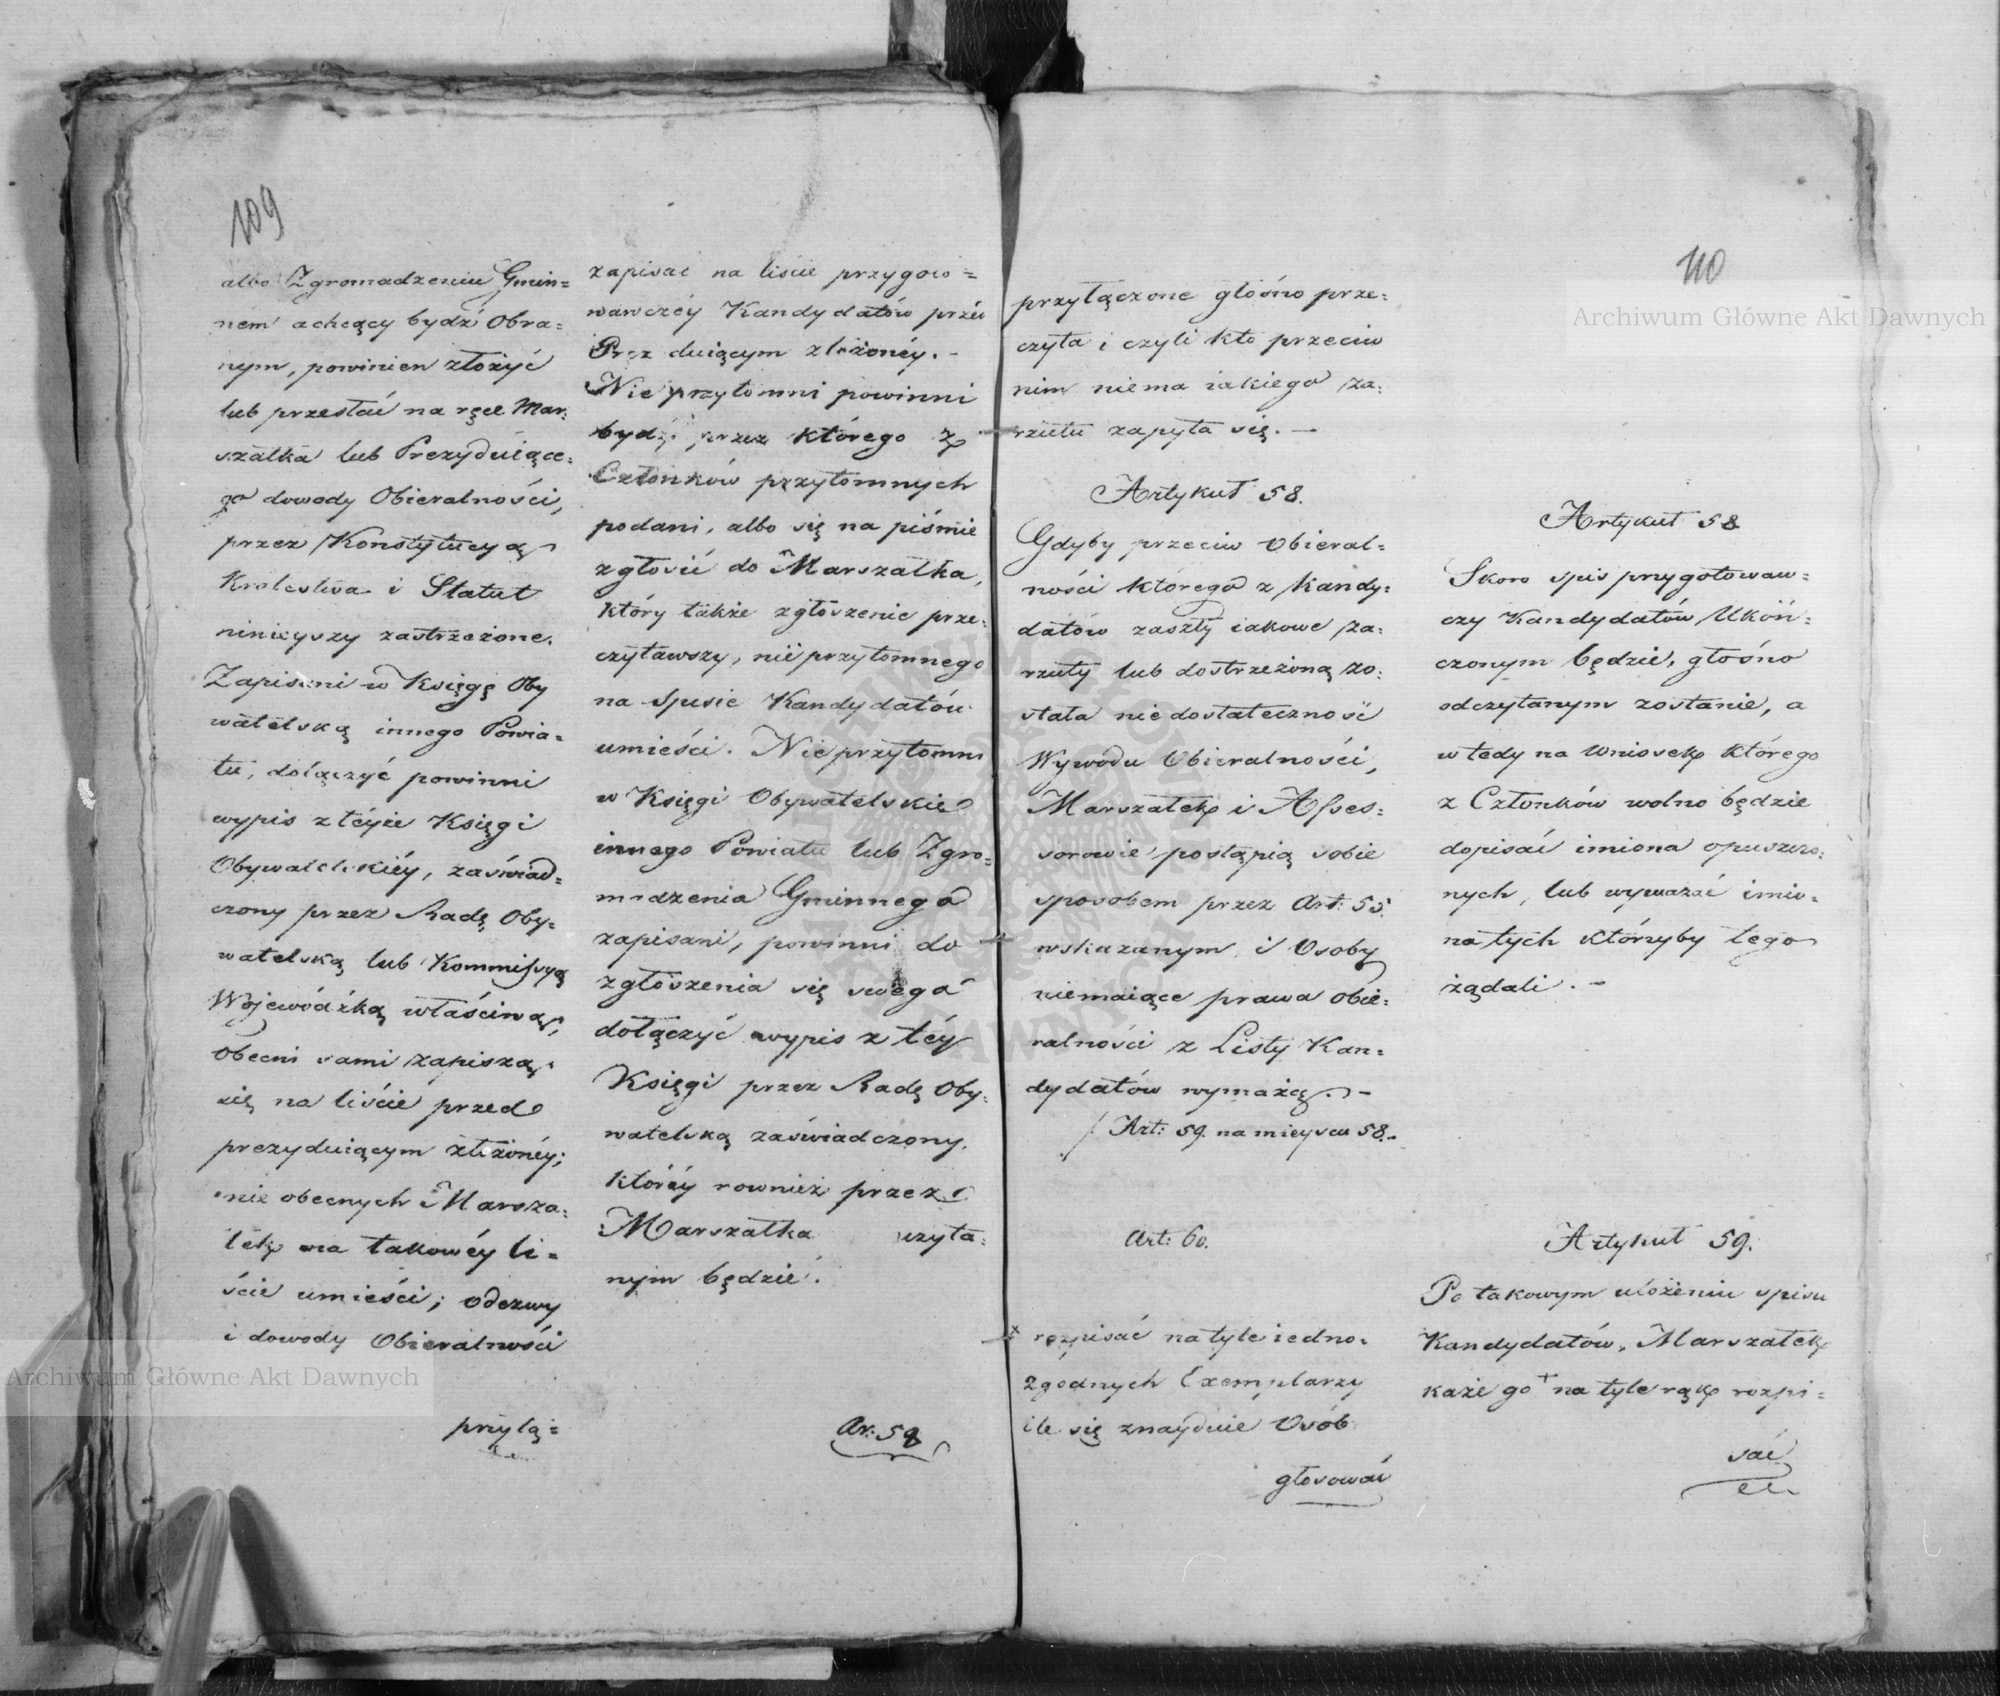 109
albo Zgromadzeniu Gmin=
nem a chcący bydź Obra=
nym, powinien złożyć
lub przesłać na ręce Mar=
szałka lub Prezyduiące=
go dowody Obieralności,
przez Konstytucyą
Krolestwa i Statut
ninieyszy zastrzeżone.
Zapisani w Księgę Oby
watelską innego Powia=
tu, dołączyć powinni
wypis z téyże Księgi
Obywatelskiéy, zaświad=
czony przez Radę Oby=
watelską lub Kommissyą
Wojewódzką właściwą,
Obecni sami zapiszą
się na liście przed
prezyduiącym złożonéy;
nie obecnych Marsza=
łek na takowéy li=
ście umieści; odezwy
i dowody Obieralności
przyłą=
zapisać na liście przygoto=
wawczéy Kandydatów przez
Prezyduiącym złożonéy. –
Nie przytomni powinni
bydź przez którego z
Członków przytomnych
podani, albo się na piśmie
zgłosić do Marszałka,
który także zgłoszenie prze=
czytawszy, nieprzytomnego
na Spisie Kandydatów
umieści. Nieprzytomni
w Księgi Obywatelskie
innego Powiatu lub Zgro=
madzenia Gminnego
zapisani, powinni do
zgłoszenia się swego
dołączyć wypis z téy
Księgi przez Radę Oby=
watelską zaświadczony,
któréy rownież przez
Marszałka czyta=
nym będzie.
Ar: 58
110
przyłączone głośno prze=
czyta i czyli kto przeciw
nim niema iakiego za=
rzutu zapyta się. –
Artykuł 58.
Gdyby przeciw Obieral=
ności którego z Kandy=
datów zaszły iakowe za=
rzuty lub dostrzeżoną zo=
stała niedostateczność
Wywodu Obieralności,
Marszałek i Asses=
sorowie postąpią sobie
sposobem przez Art: 55.
wskazanym i Osoby
niemaiące prawa obie=
ralności z Listy Kan=
dydatów wymażą. –
/ Art: 59. na mieyscu 58.
Art: 60.
x rozpisać na tyle iedno=
zgodnych Exemplarzy
ile się znayduie Osób
głosować
Artykuł 58
Skoro spis przygotowaw=
czy Kandydatów Ukoń=
czonym będzie, głośno
odczytanym zostanie, a
wtedy na Wniosek którego
z Członków wolno będzie
dopisać imiona opuszczo=
nych, lub wymazać imio=
na tych którzyby tego
żądali. –
Artykuł 59.
Po takowym ułożeniu spisu
Kandydatów, Marszałek
każe go + na tyle rąk rozpi=
sać
Archiwum Główne Akt Dawnych
Archiwum Główne Akt Dawnych